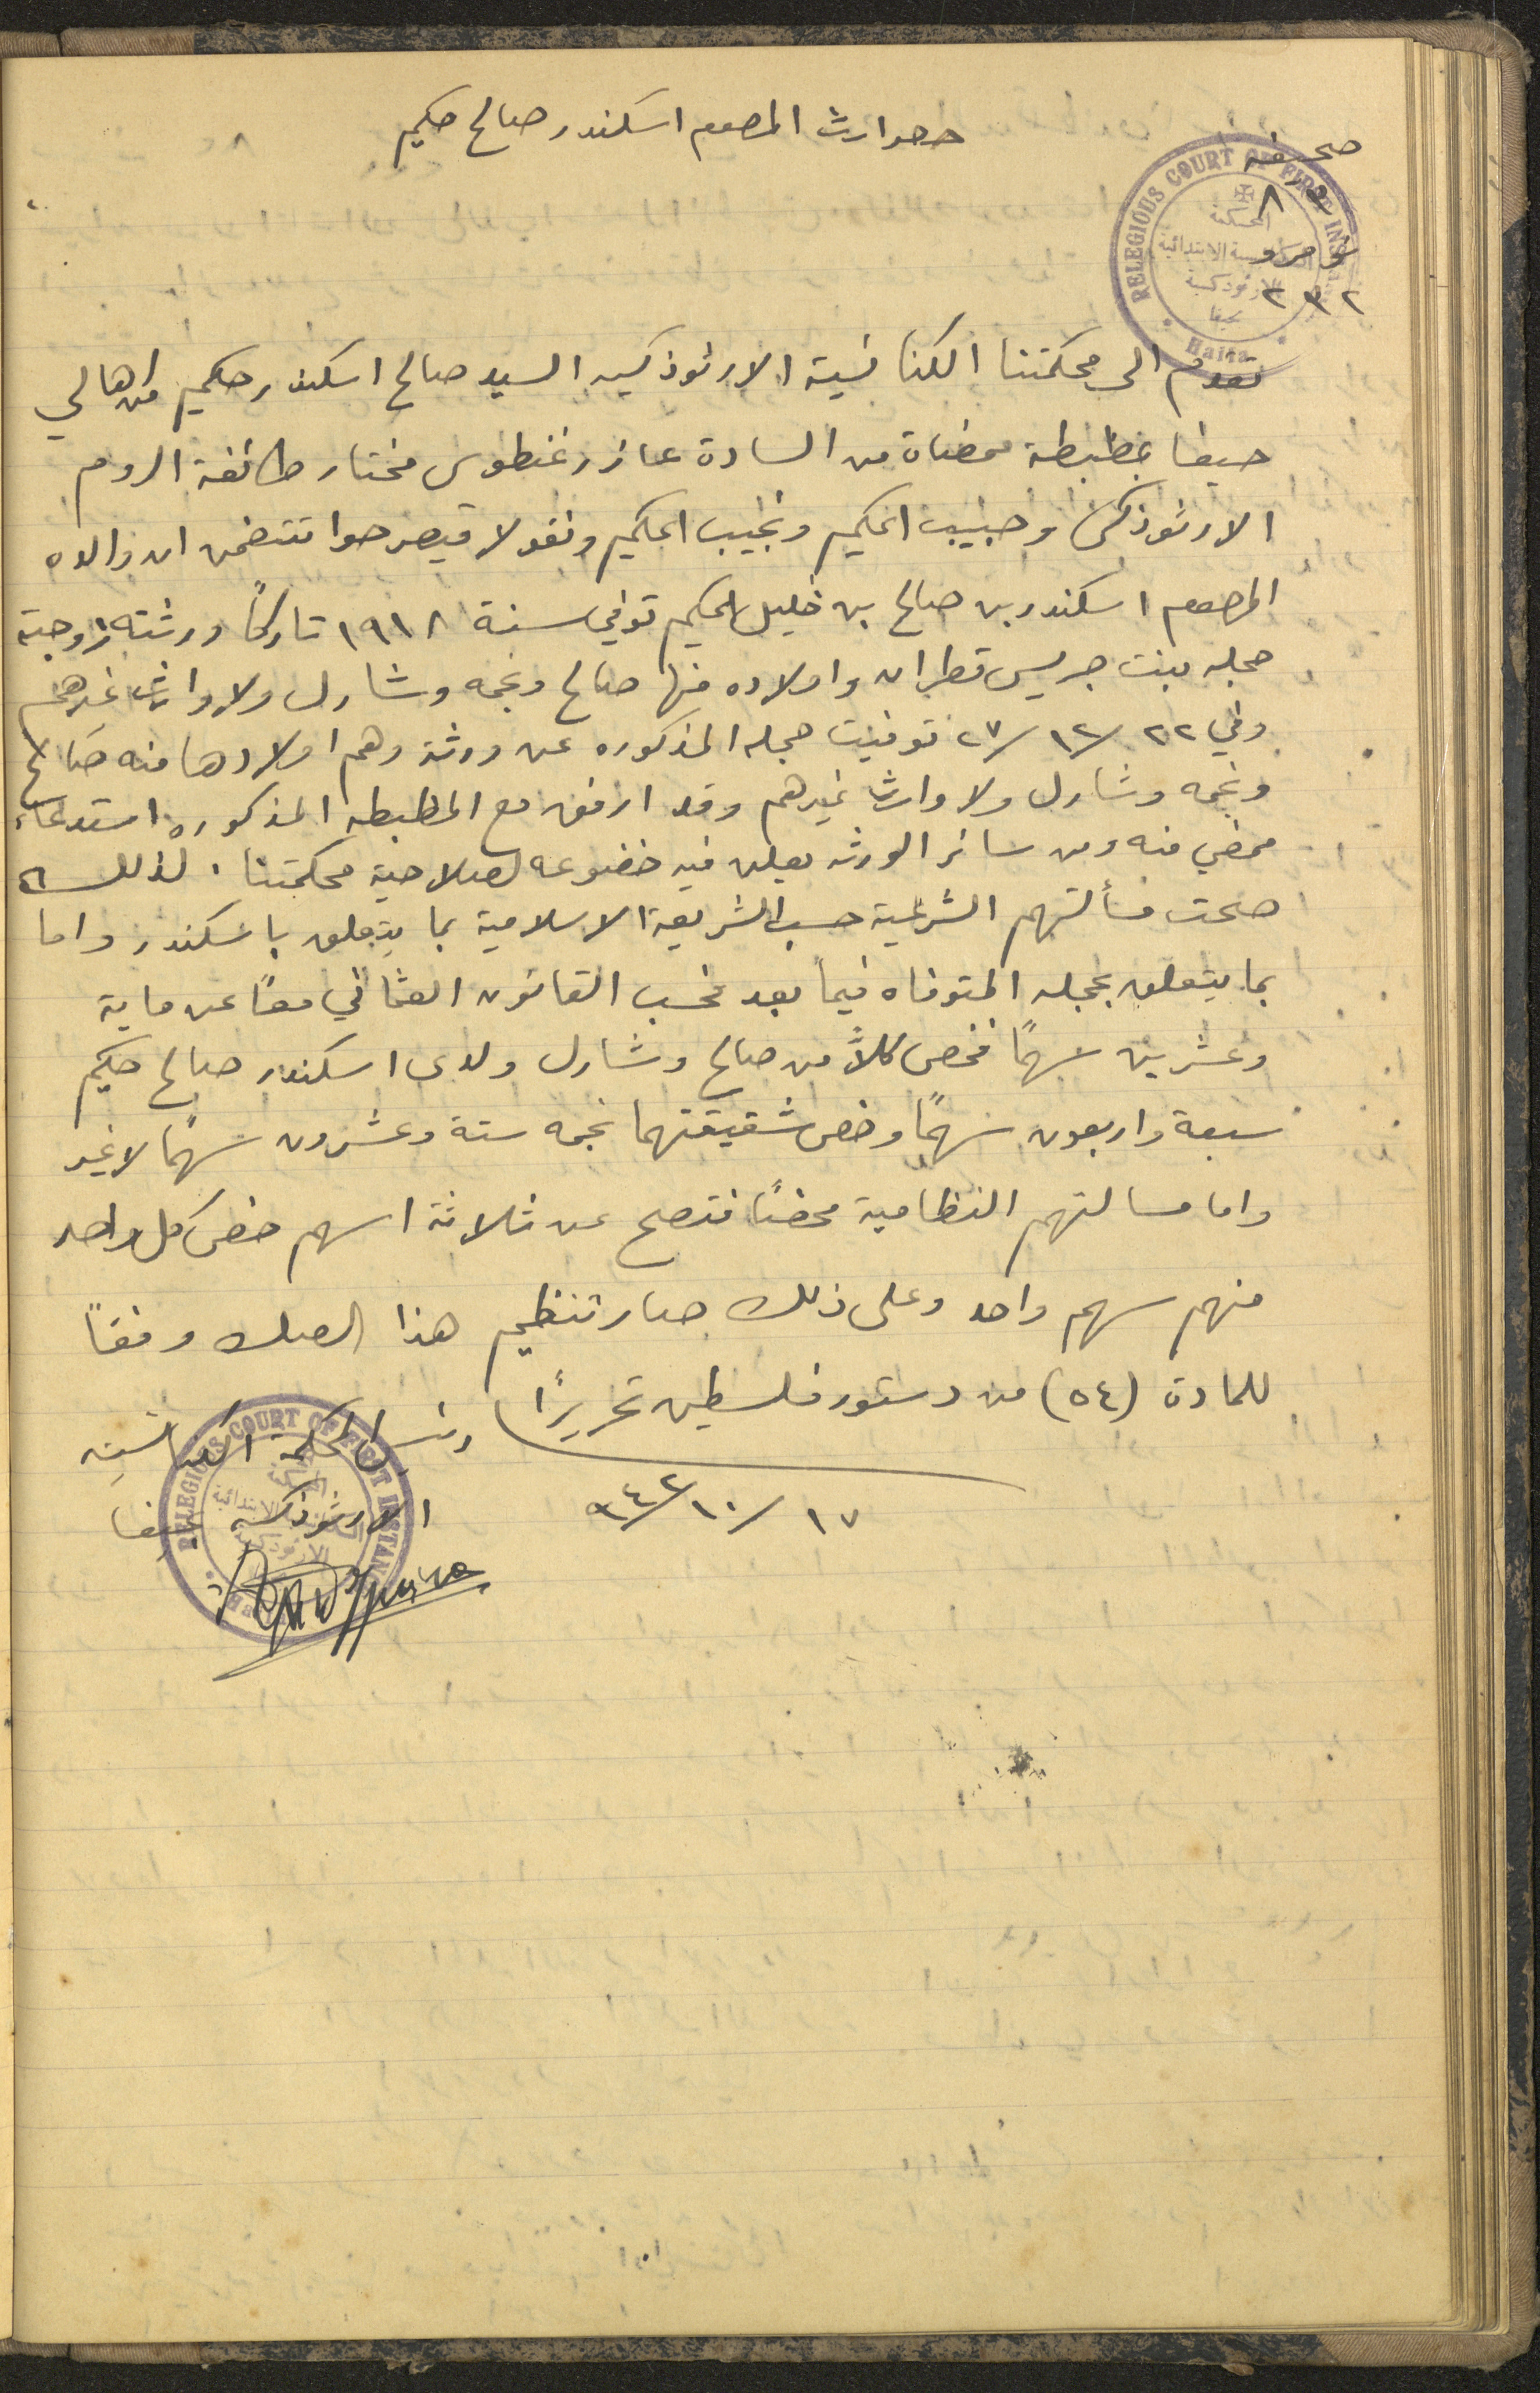 حصر ارث المرحوم اسكندر صالح حكيم
صحيفة
٨
نومرو
٢٣٢
RELEGIOUS COURT OF FIRST INSTANCE
المحكمة
الكنائسية الابتدائية
الارثوذكسية
بحيفا
Haifa
تقدم الى محكمتنا الكنائسية الارثوذكسيه السيد صالح اسكندر حكيم من اهالي
حيفا بمضبطة ممضاة من السادة عازر غنطوس مختار طائفة الروم
الارثوذكس وحبيب الحكيم ونجيب الحكيم ونقولا قيصر حوا تتضمن ان والده
المرحوم اسكندر بن صالح بن خليل الحكيم توفي سنة ١٩١٨ تاركاً ورثته زوجته
عجله بنت جريس قطران واولاده منها صالح ونجمه وشارل ولا وارث غيرهم
وفي ٢٢/١٢/٢٧ توفيت عجله المذكوره عن ورثة وهم اولادها منه صالح
ونجمه وشارل ولا وارث غيرهم وقد ارفق مع المظبطه المذكوره استدعاء
ممضي منه ومن سائر الورثه يعلن فيه خضوعه لصلاحية محكمتنا. لذلك
صحت مسألتهم الشرعية حسب الشريعة الاسلامية بما يتعلق باسكندر واما
بما يتعلق بعجله المتوفاه فيما بعد فحسب القانون العثماني معاً عن ماية
وعشرين سهماً فخص كلاً من صالح وشارل ولدى اسكندر صالح حكيم
سبعة واربعون سهماً وخص شقيقتهما نجمه ستة وعشرون سهماً لاغير
واما مسالتهم النظامية محضاً فتصح عن ثلاثة اسهم خص كل واحد
منهم سهم واحد وعلى ذلك صار تنظيم هذا الصك وفقاً
للمادة (٥٤) من دستور فلسطين تحريراً
١٧/١٠/٩٤٢
رئيس المحكمة الكنائسيه
الارثوذكسيه حيفا
RELEGIOUS COURT OF FIRST INSTANCE